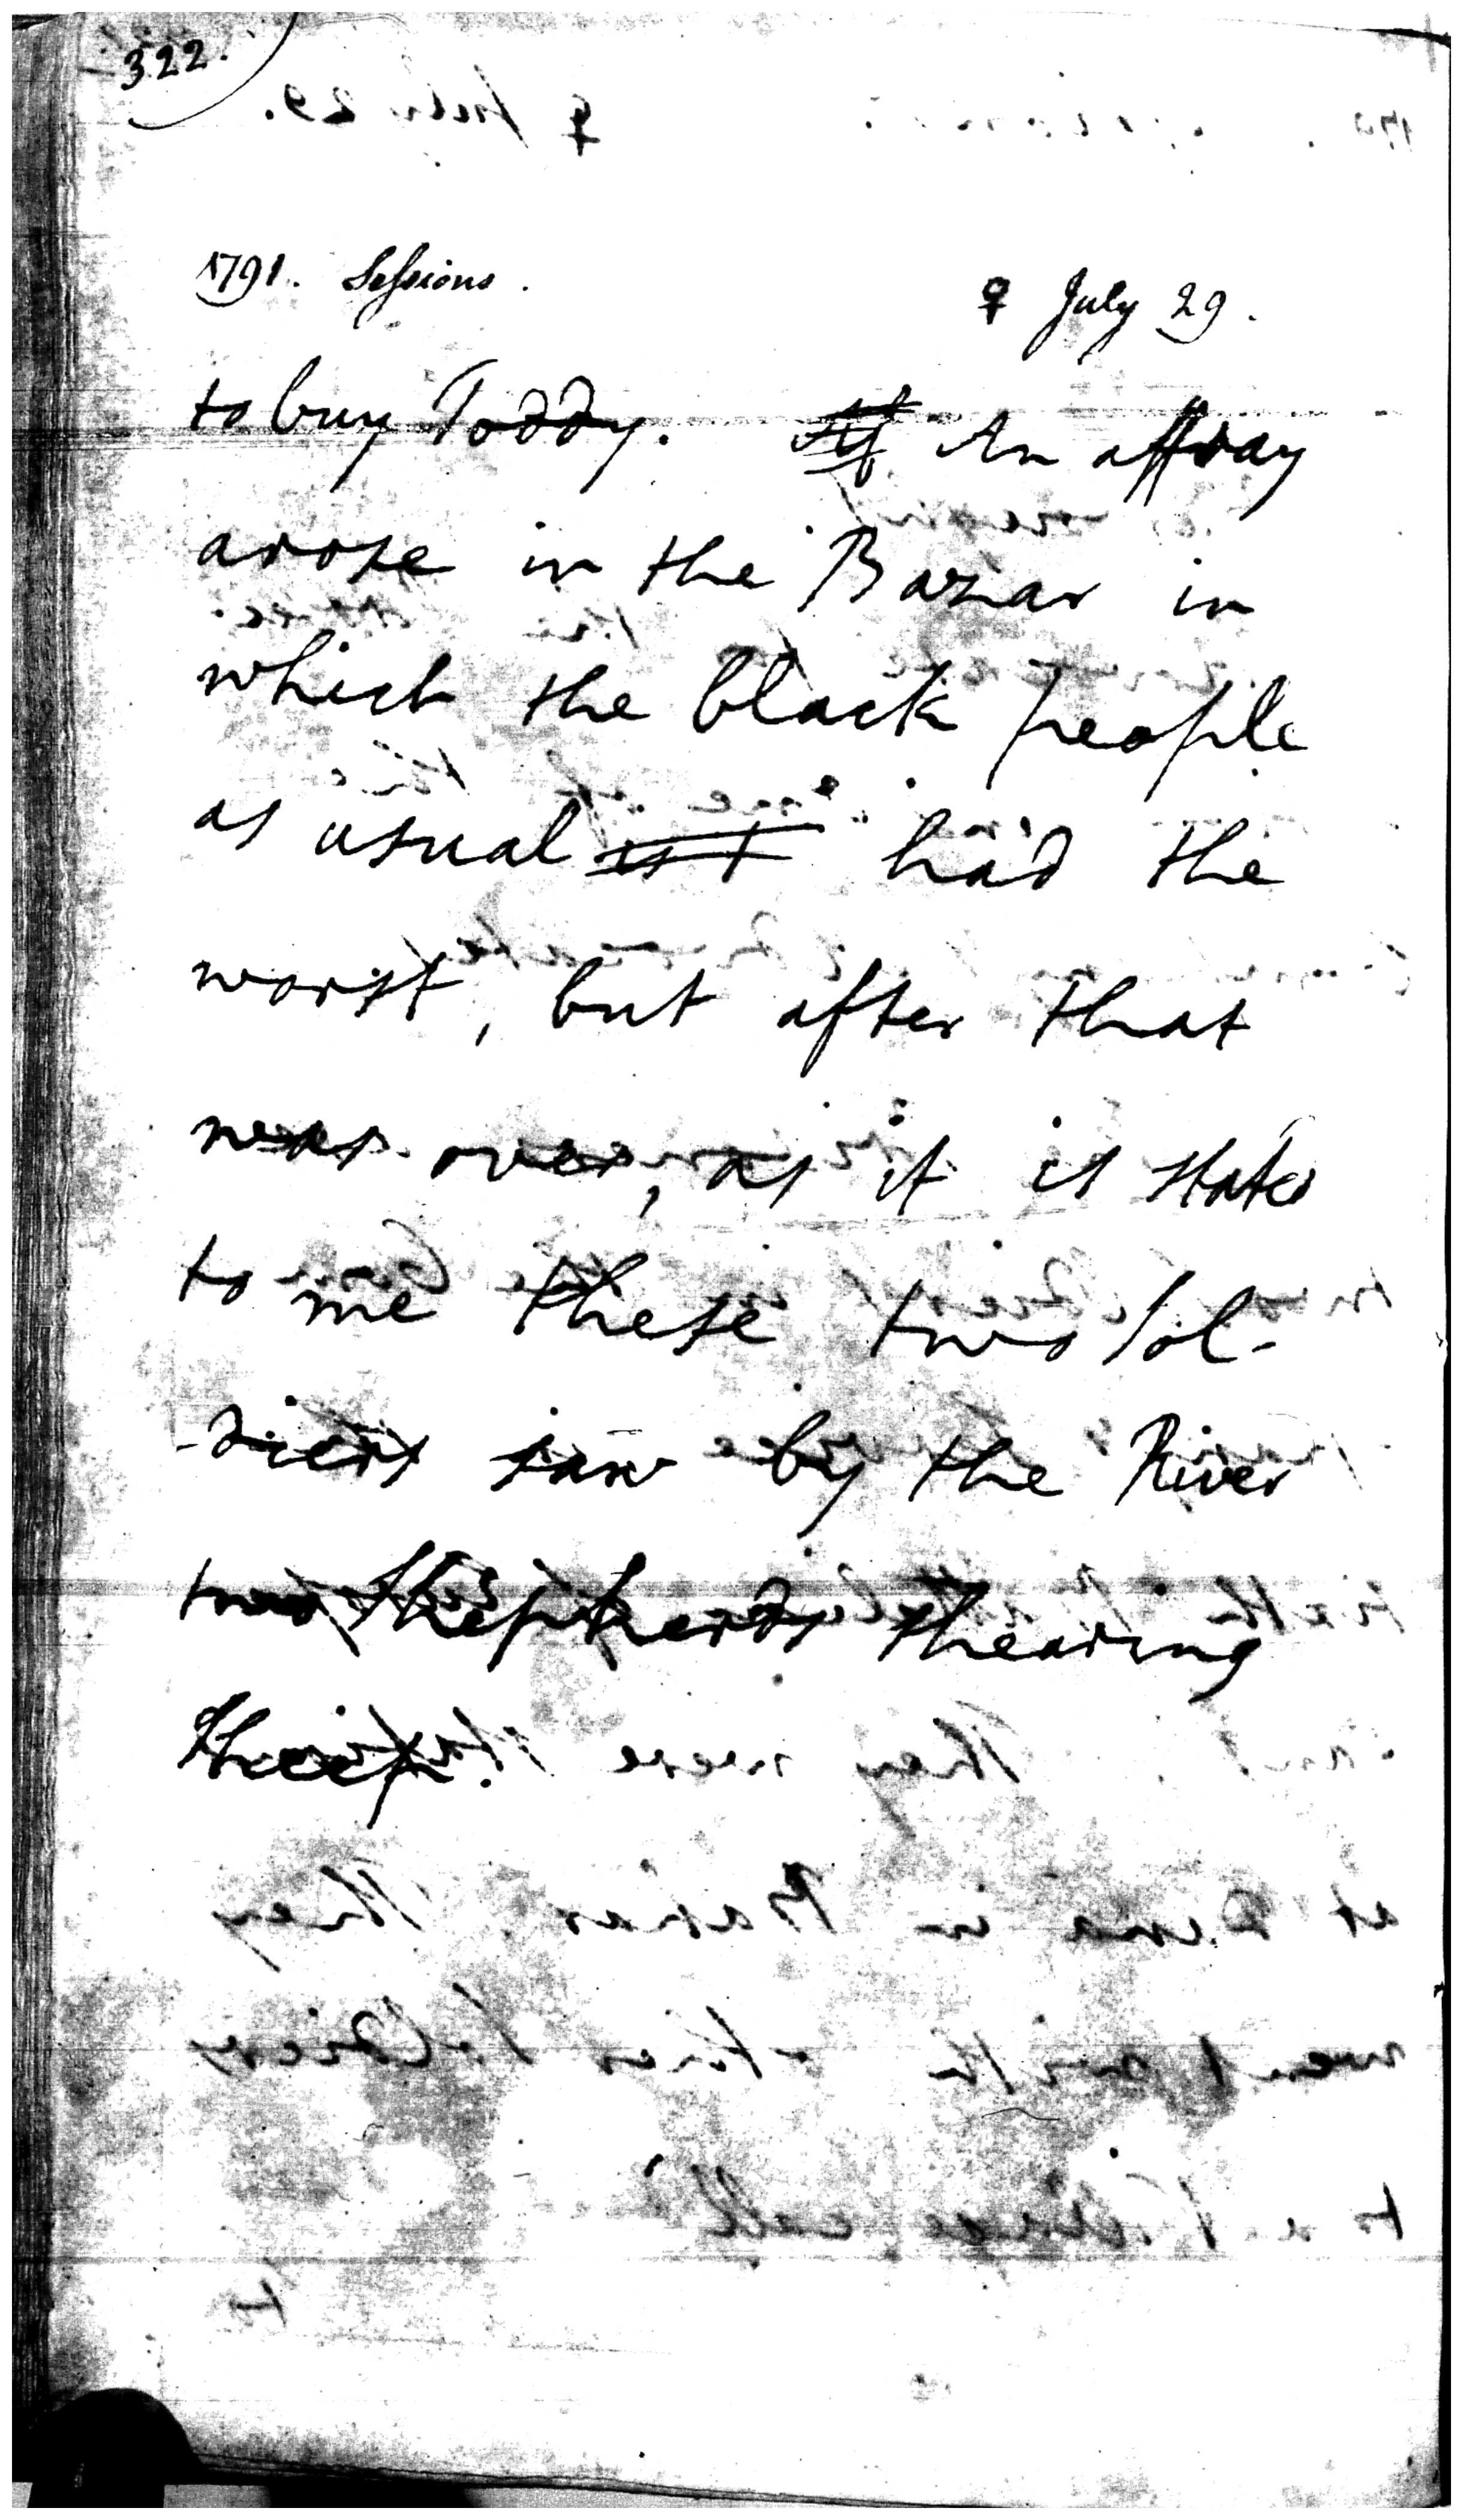 322.
1791. Sessions.
♀ July 29.
to buy Toddy. An affray
arose in the Bazar in
which the black people
as usual had the
worst, but after that
was over, as it is stated
to me these two sol-
-diers saw by the River
two shepherds shearing
sheep.